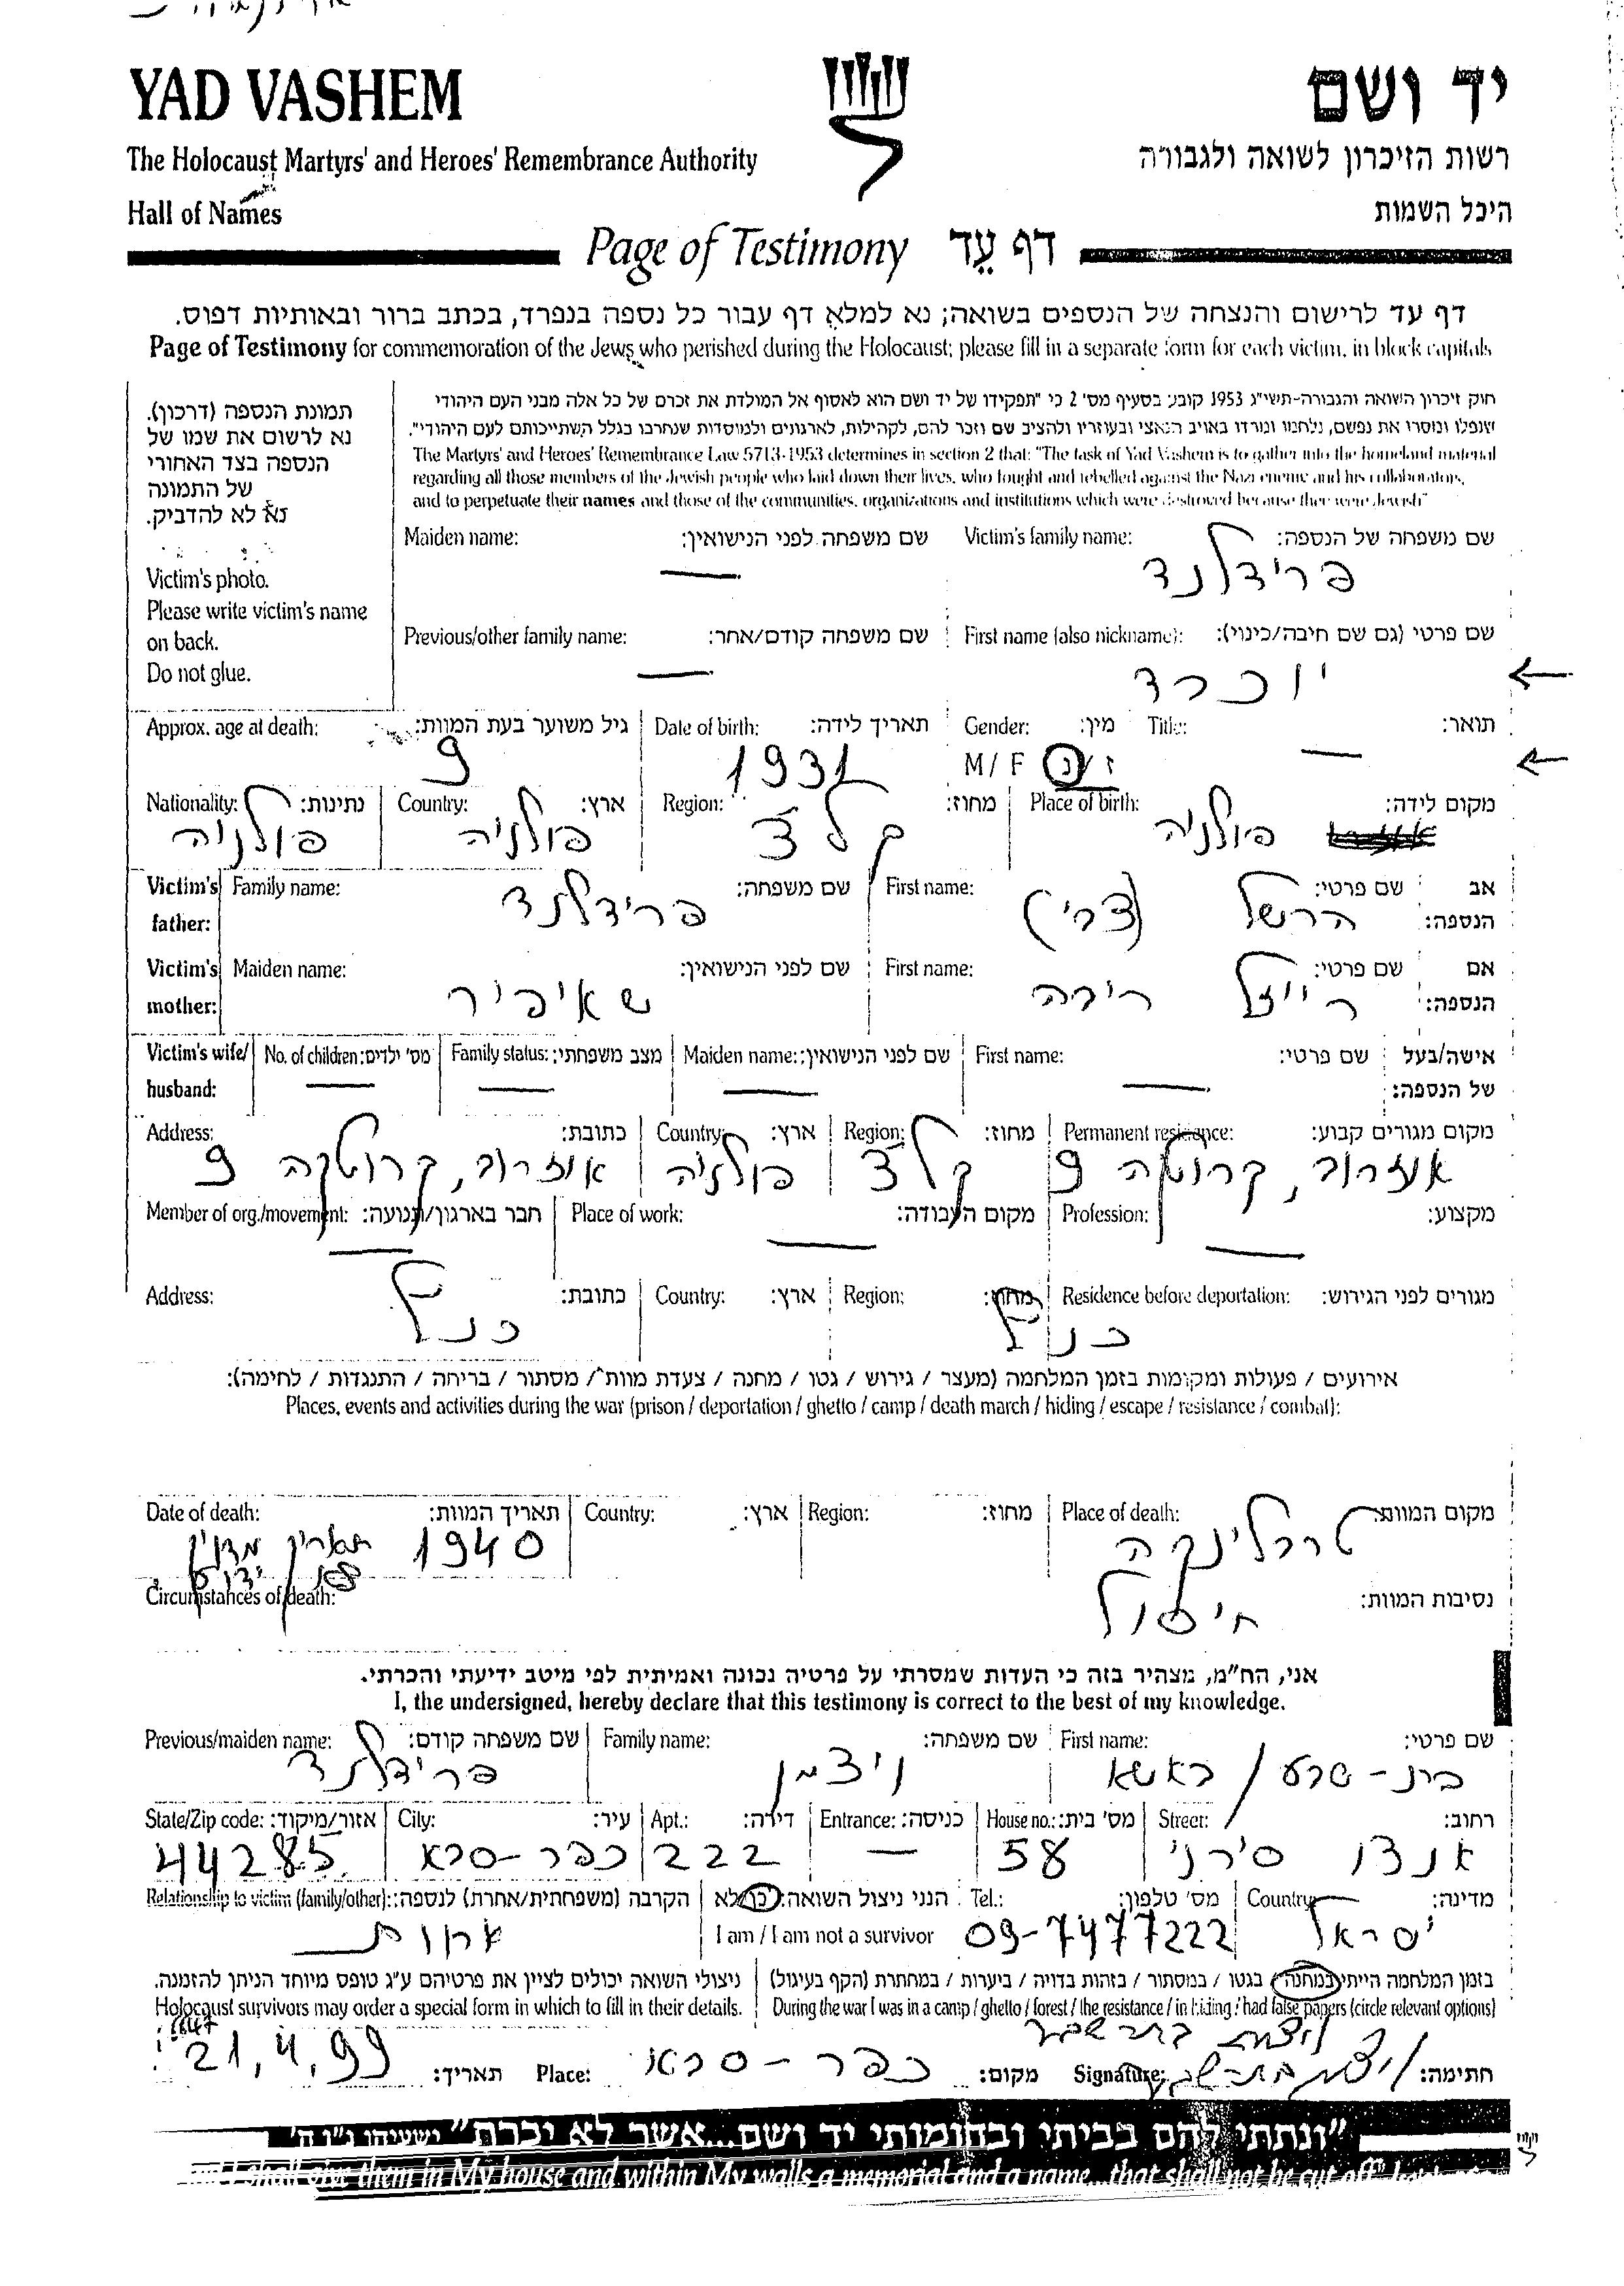 YAD VASHEM
יד ושם
The Holocaust Martyrs' and Heroes' Remembrance Authority
רשות הזיכרון לשואה ולגבורה
Hall of Names
היכל השמות
Page of Testimony דף עֵד
דף עד לרישום והנצחה של הנספים בשואה; נא למלא דף עבור כל נספה בנפרד, בכתב ברור ובאותיות דפוס.
Page of Testimony for commemoration of the Jews who perished during the Holocaust; please fill in a separate form for each victim, in block capitals
תמונת הנספה (דרכון).
נא לרשום את שמו של
הנספה בצד האחורי
של התמונה
נא לא להדביק.
Victim's photo.
Please write victim's name
on back.
Do not glue.
חוק זיכרון השואה והגבורה-תשי"ג 1953 קובע בסעיף מס' 2 כי "תפקידו של יד ושם הוא לאסוף אל המולדת את זכרם של כל אלה מבני העם היהודי
שנפלו ומסרו את נפשם, נלחמו ומרדו באויב הנאצי ובעוזריו ולהציב שם וזכר להם, לקהילות, לארגונים ולמוסדות שנחרבו בגלל השתייכותם לעם היהודי".
The Martyrs' and Heroes' Remembrance Law 5713-1953 determines in section 2 that: "The task of Yad Vashem is to gather into the homeland material
regarding all those members of the Jewish people who laid down their lives, who fought and rebelled against the Nazi enemy and his collaborators,
and to perpetuate their names and those of the communities, organizations and institutions which were destroyed because they were Jewish"
שם משפחה של הנספה: Victim's family name: שם משפחה לפני הנישואין: Maiden name:
פרידלנד —
שם פרטי (גם שם חיבה/כינוי): First name (also nickname): שם משפחה קודם/אחר: Previous/other family name:
יוכבד —
תואר: Title: מין: Gender: תאריך לידה: Date of birth: גיל משוער בעת המוות: Approx. age at death:
— ז / נ M / F 1931 9
מקום לידה: Place of birth: מחוז: Region: ארץ: Country: נתינות: Nationality:
פולניה קלצ פולניה פולניה
אב שם פרטי: First name: שם משפחה: Family name: Victim's
הנספה: הרשל (צבי) פרידלנד father:
אם שם פרטי: First name: שם לפני הנישואין: Maiden name: Victim's
הנספה: רייזל שאיפיר mother:
אישה/בעל שם פרטי: First name: שם לפני הנישואין: Maiden name: מצב משפחתי: Family status: מס' ילדים: No. of children: Victim's wife/
של הנספה: — — — — husband:
מקום מגורים קבוע: Permanent residence: מחוז: Region: ארץ: Country: כתובת: Address:
אוזרוב, קרוטקה 9 קלצ פולניה אוזרוב, קרוטקה 9
מקצוע: Profession: מקום העבודה: Place of work: חבר בארגון/תנועה: Member of org./movement:
— — —
מגורים לפני הגירוש: Residence before deportation: מחוז: Region: ארץ: Country: כתובת: Address:
כנ"ל כנ"ל
אירועים / פעולות ומקומות בזמן המלחמה (מעצר / גירוש / גטו / מחנה / צעדת מוות / מסתור / בריחה / התנגדות / לחימה):
Places, events and activities during the war (prison / deportation / ghetto / camp / death march / hiding / escape / resistance / combat):
מקום המוות: Place of death: מחוז: Region: ארץ: Country: תאריך המוות: Date of death:
טרבלינקה 1940 תאריך מדויק
לא ידוע
נסיבות המוות: Circumstances of death:
חיסול
אני, הח"מ, מצהיר בזה כי העדות שמסרתי על פרטיה נכונה ואמיתית לפי מיטב ידיעתי והכרתי.
I, the undersigned, hereby declare that this testimony is correct to the best of my knowledge.
שם פרטי: First name: שם משפחה: Family name: שם משפחה קודם: Previous/maiden name:
בת-שבע / באשא ויצמן פרידלנד
רחוב: Street: מס' בית: House no.: כניסה: Entrance: דירה: Apt.: עיר: City: אזור/מיקוד: State/Zip code:
אנצו סירני 58 — 222 כפר-סבא 44285
מדינה: Country: מס' טלפון: Tel.: הנני ניצול השואה: כן/לא הקרבה (משפחתית/אחרת) לנספה: Relationship to victim (family/other):
ישראל 09-7477222 I am / I am not a survivor אחות
בזמן המלחמה הייתי במחנה / בגטו / במסתור / בזהות בדויה / ביערות / במחתרת (הקף בעיגול) ניצולי השואה יכולים לציין את פרטיהם ע"ג טופס מיוחד הניתן להזמנה.
During the war I was in a camp / ghetto / forest / the resistance / in hiding / had false papers (circle relevant options) Holocaust survivors may order a special form in which to fill in their details.
ויצמן בת שבע
חתימה: Signature: ויצמן בת-שבע מקום: כפר-סבא Place: תאריך: 21.4.99
"ונתתי להם בביתי ובחומותי יד ושם...אשר לא יכרת" ישעיהו נ"ו ה'
I shall give them in My house and within My walls a memorial and a name...that shall not be cut off."